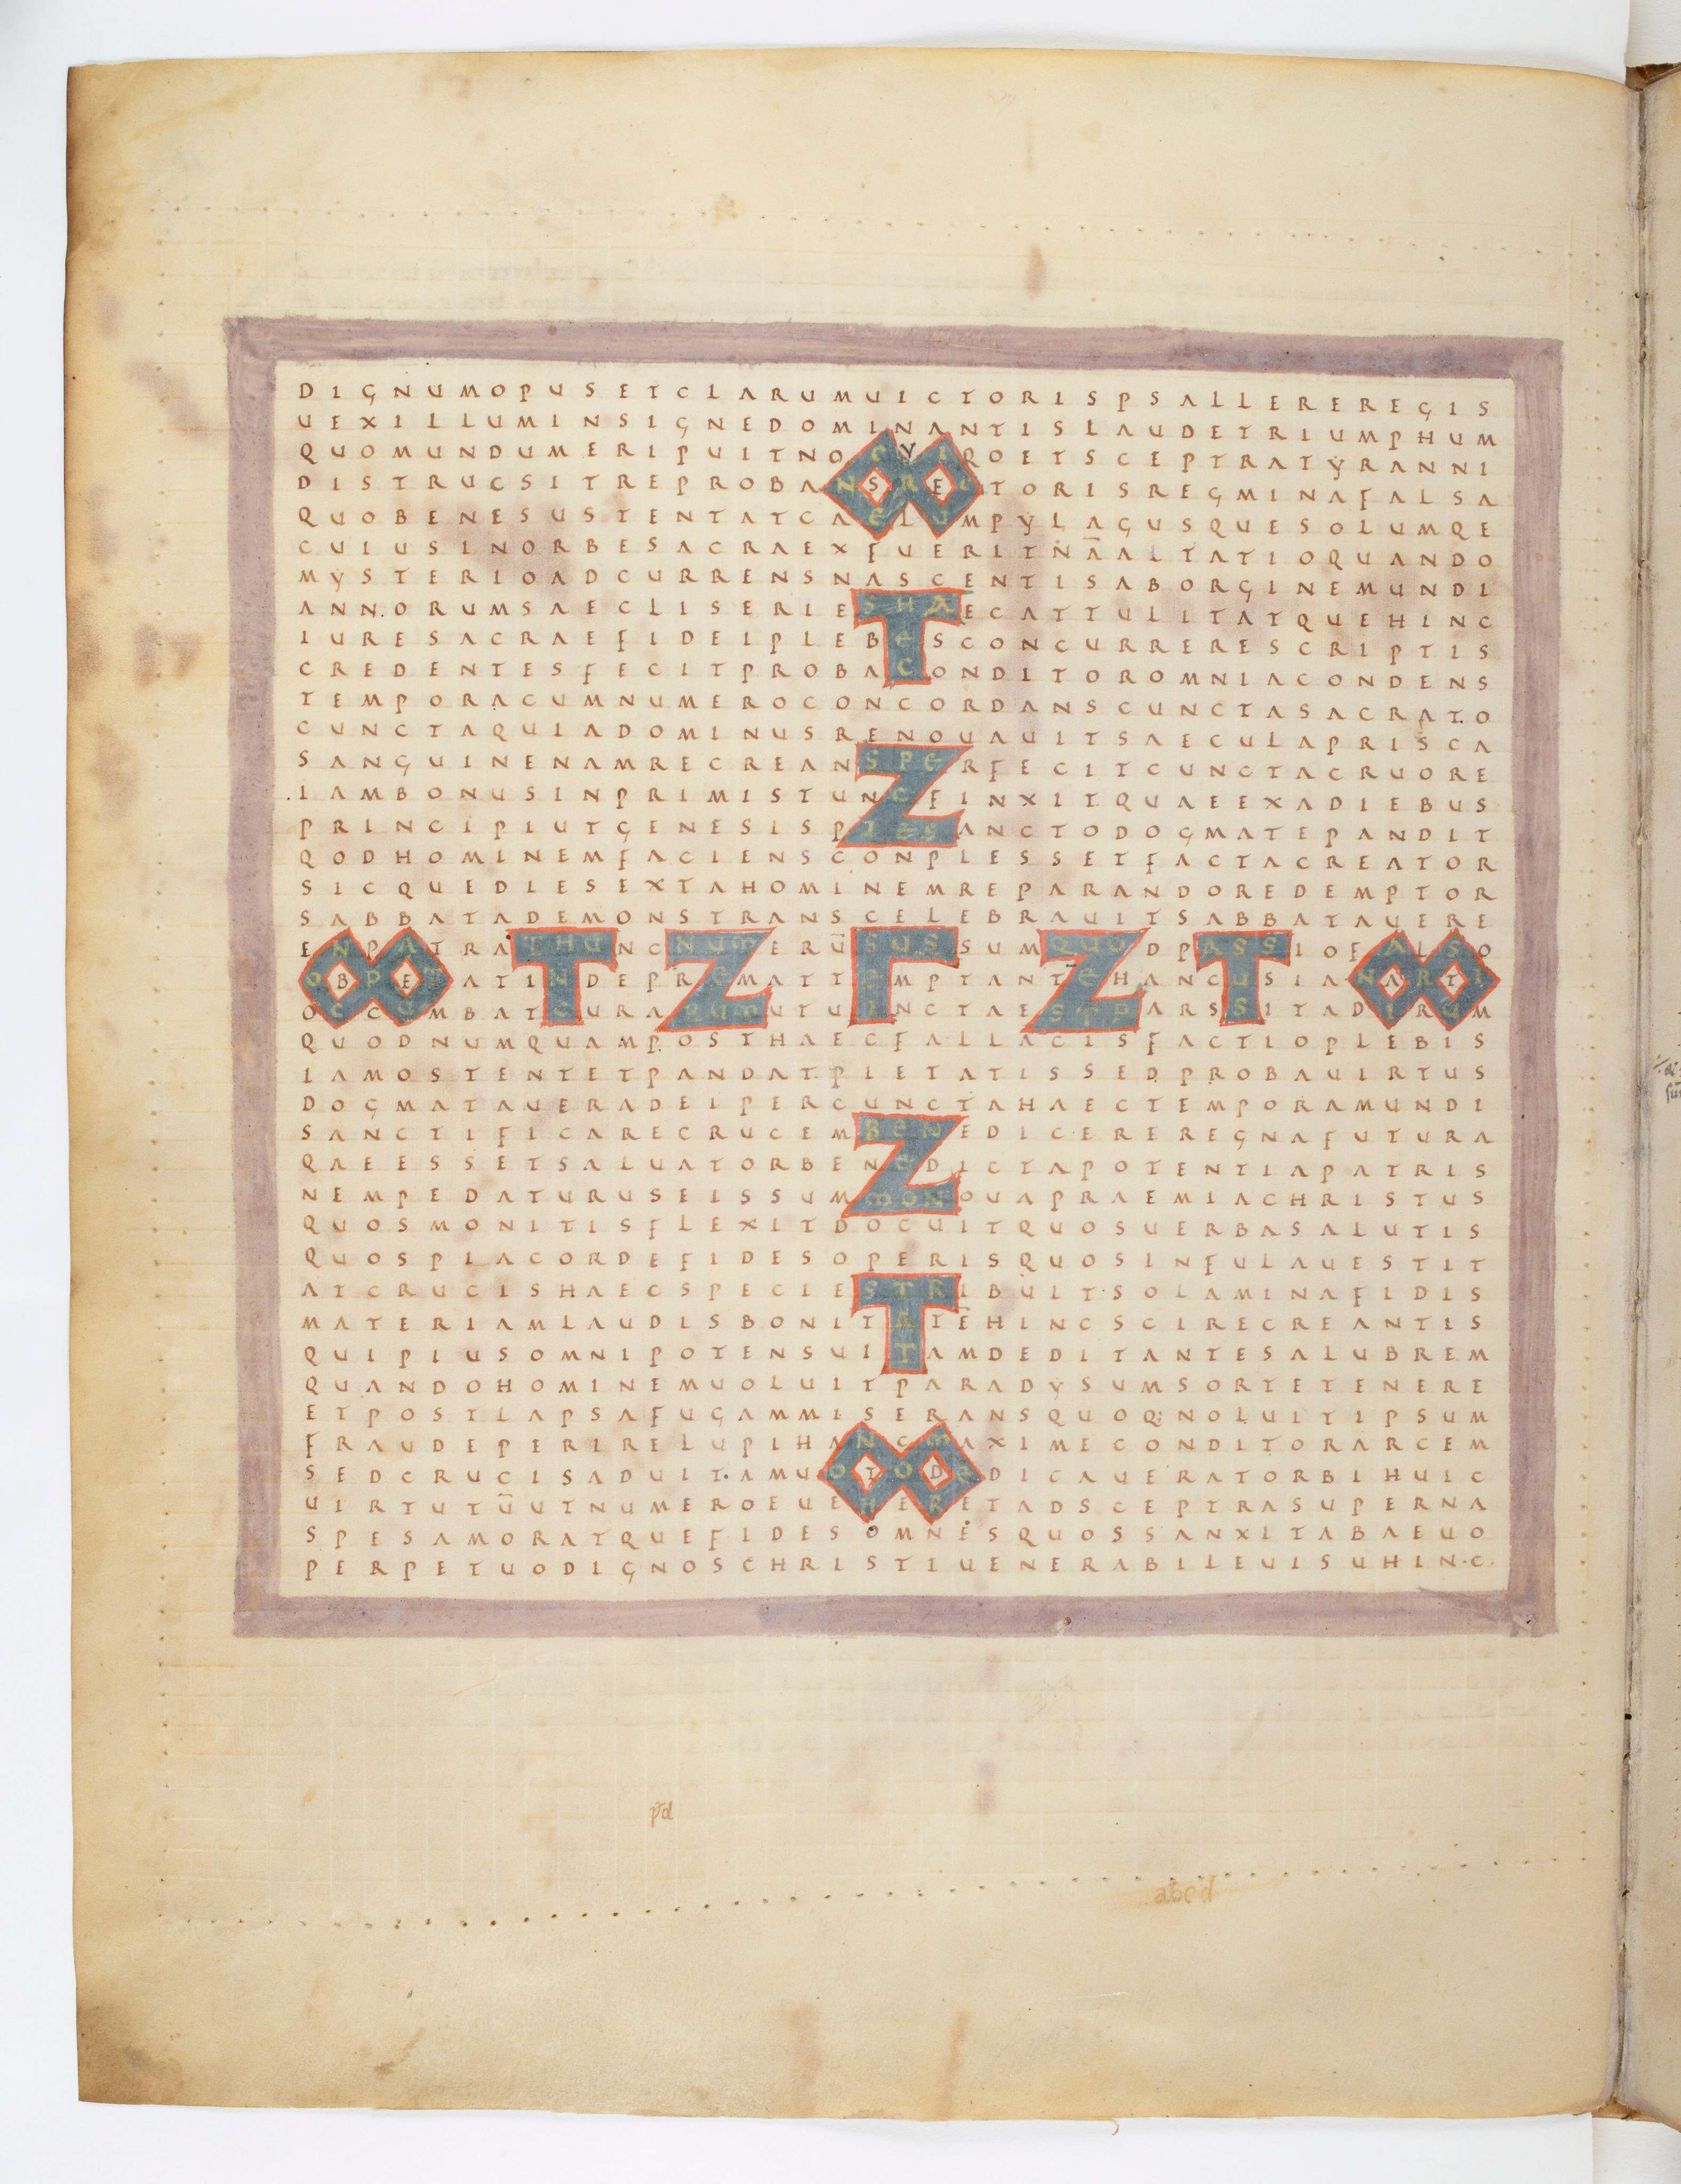 DIGNUMOPUSETCLARUMUICTORISPSALLEREREGIS
UEXILLUMINSIGNEDOMINANTISLAUDETRIUMPHUM
QUOMUNDUMERIPUITNOCYIQOETSCEPTRATYRANNI
DISTRUCSITREPROBANSRECTORISREGMINAFALSA
QUOBENESUSTENTATCAELUMPYLAGUSQUESOLUMQE
CUIUSINORBESACRAEXFUERITNĀALTATIOQUANDO
MYSTERIOADCURRENSNASCENTISABORGINEMUNDI
ANNORUMSAECLISERIESHAECATTULITATQUEHINC
IURESACRAEFIDEIPLEBESCONCURRERESCRIPTIS
CREDENTESFECITPROBACONDITOROMNIACONDENS
TEMPORACUMNUMEROCONCORDANSCUNCTASACRATO
CUNCTAQUIADOMINUSRENOUAUITSAECULAPRISCA
SANGUINENAMRECREANSPERFECITCUNCTACRUORE
IAMBONUSINPRIMISTUNCFINXITQUAEEXADIEBUS
PRINCIPIUTGENESISPIESANCTODOGMATEPANDIT
QODHOMINEMFACIENSCONPLESSETFACTACREATOR
SICQUEDIESEXTAHOMINEMREPARANDOREDEMPTOR
SABBATADEMONSTRANSCELEBRAUITSABBATAUERE
ENPATRATHUNCNUMERŪSUSSUMQUODPASSIOFALSO
OBPETATINDEPREMATTEMPTANTEHANCUSIANARTI
OCCUMBATCURARUMUTUINCTAESTPARSSITADIRUM
QUODNUMQUAMPOSTHAECFALLACISFACTIOPLEBIS
IAMOSTENTETPANDATPIETATISSEDPROBAUIRTUS
DOGMATAUERADEIPERCUNCTAHAECTEMPORAMUNDI
SANCTIFICARECRUCEMBENEDICEREREGNAFUTURA
QAEESSETSALUATORBENEDICTAPOTENTIAPATRIS
NEMPEDATURUSEISSUMMONOUAPRAEMIACHRISTUS
QUOSMONITISFLEXITDOCUITQUOSUERBASALUTIS
QUOSPIACORDEFIDESOPERISQUOSINFULAUESTIT
ATCRUCISHAECSPECIESTRIBUITSOLAMINAFIDIS
MATERIAMLAUDISBONITATĒHINCSCIRECREANTIS
QUIPIUSOMNIPOTENSUITAMDEDITANTESALUBREM
QUANDOHOMINEMUOLUITPARADYSUMSORTETENERE
ETPOSTLAPSAFUGAMMISERANSQUOQ:NOLUITIPSUM
FRAUDEPERIRELUPIHANCMAXIMECONDITORARCEM
SEDCRUCISADUITAMUOTODEDICAUERATORBIHUIC
UIRTUTŪUTNUMEROEUEHERETADSCEPTRASUPERNA
SPESAMORATQUEFIDESOMNESQUOSSANXITABAEUO
PERPETUODIGNOSCHRISTIUENERABILEUISUHINC
abcd